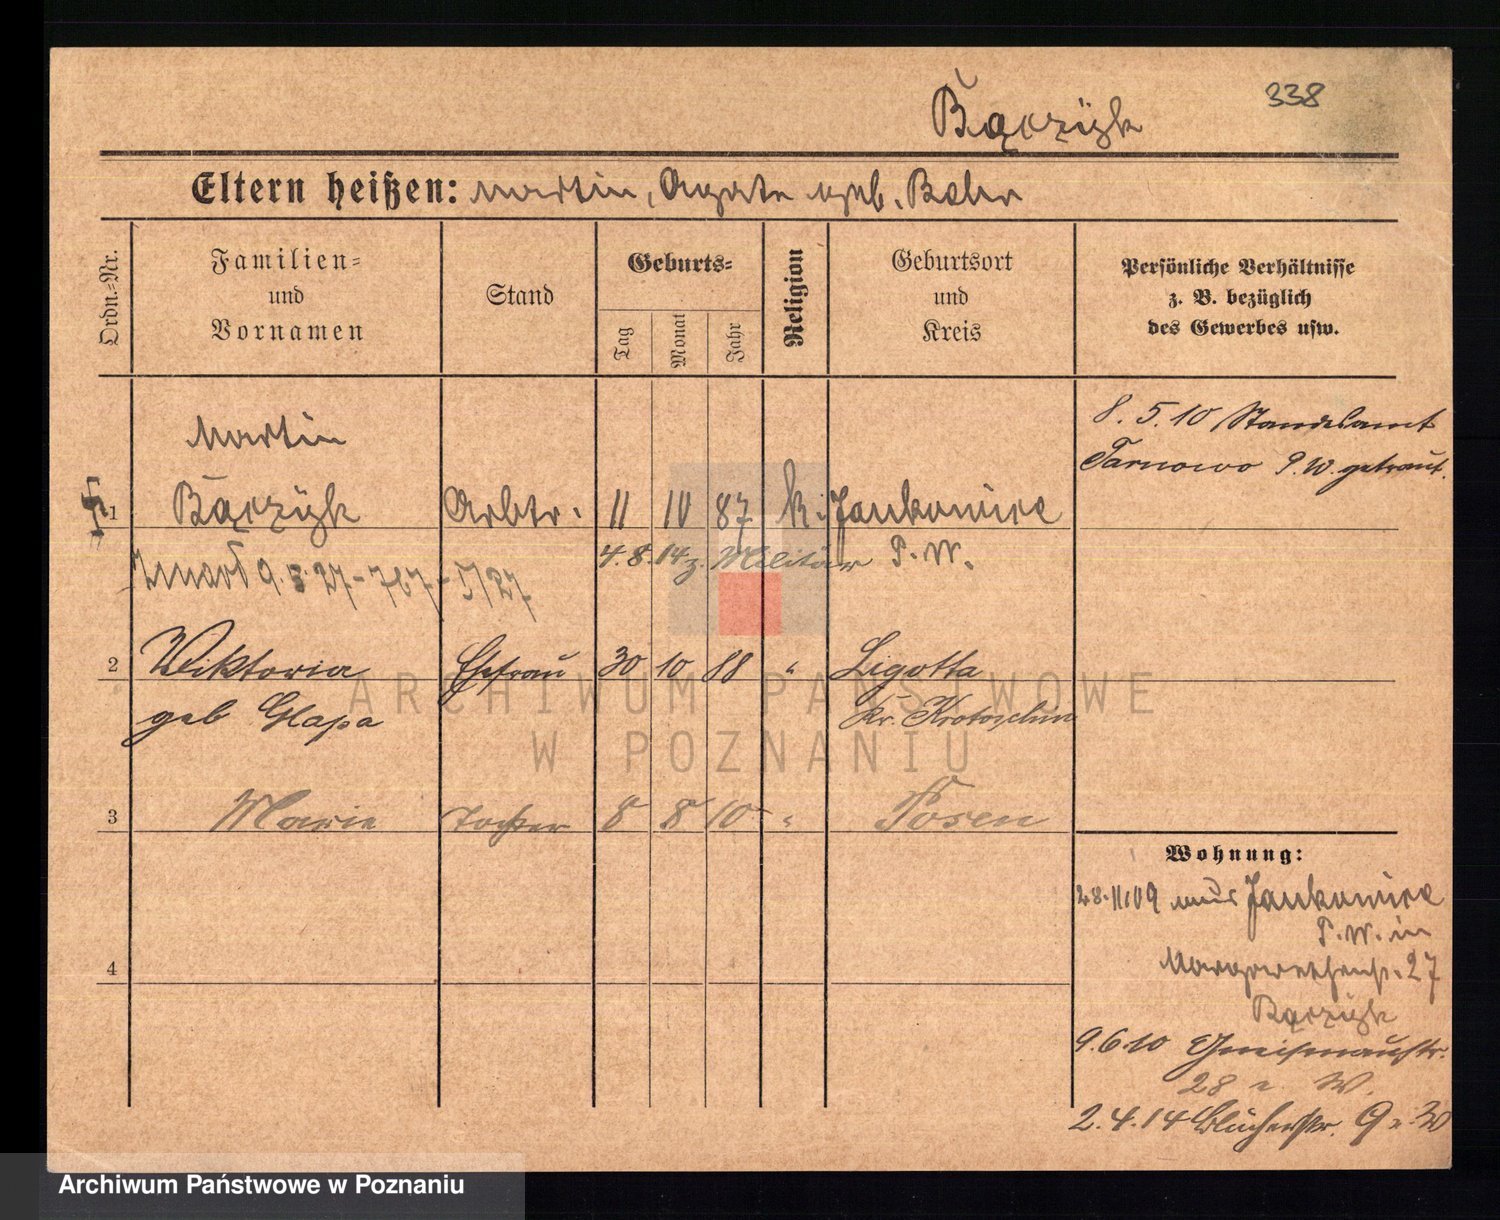 Bączyk
338
Eltern heißen: Martin, Agata geb. Bahr
Ordn.-Nr.
Familien-
und
Vornamen
Stand
Geburts-
Tag
Monat
Jahr
Religion
Geburtsort
und
Kreis
Persönliche Verhältnisse
z. B. bezüglich
des Gewerbes usw.
8. 5. 10 Standesamt
Tarnowo P. W. getraut.
Martin
1 Bączyk Arbtr. 11 10 87 k. Jankowice
4. 8. 14 z. Militär P. W.
Zmarł 9. 27 - 767 - 5/27
2 Wiktoria Ehefrau 30 10 88 " Ligotta
geb Glapa Kr. Krotoschin
ARCHIWUM PAŃSTWOWE
W POZNANIU
3 Marie Tochter 8 8 10 " Posen
Wohnung:
28. 11. 09 aus Jankowice
P. W. in
Margaretenstr. 27
Bączyk
4
9. 6. 10 Gneisenaustr.
28 W.
2. 4. 14 Blücherstr. 9
Archiwum Państwowe w Poznaniu